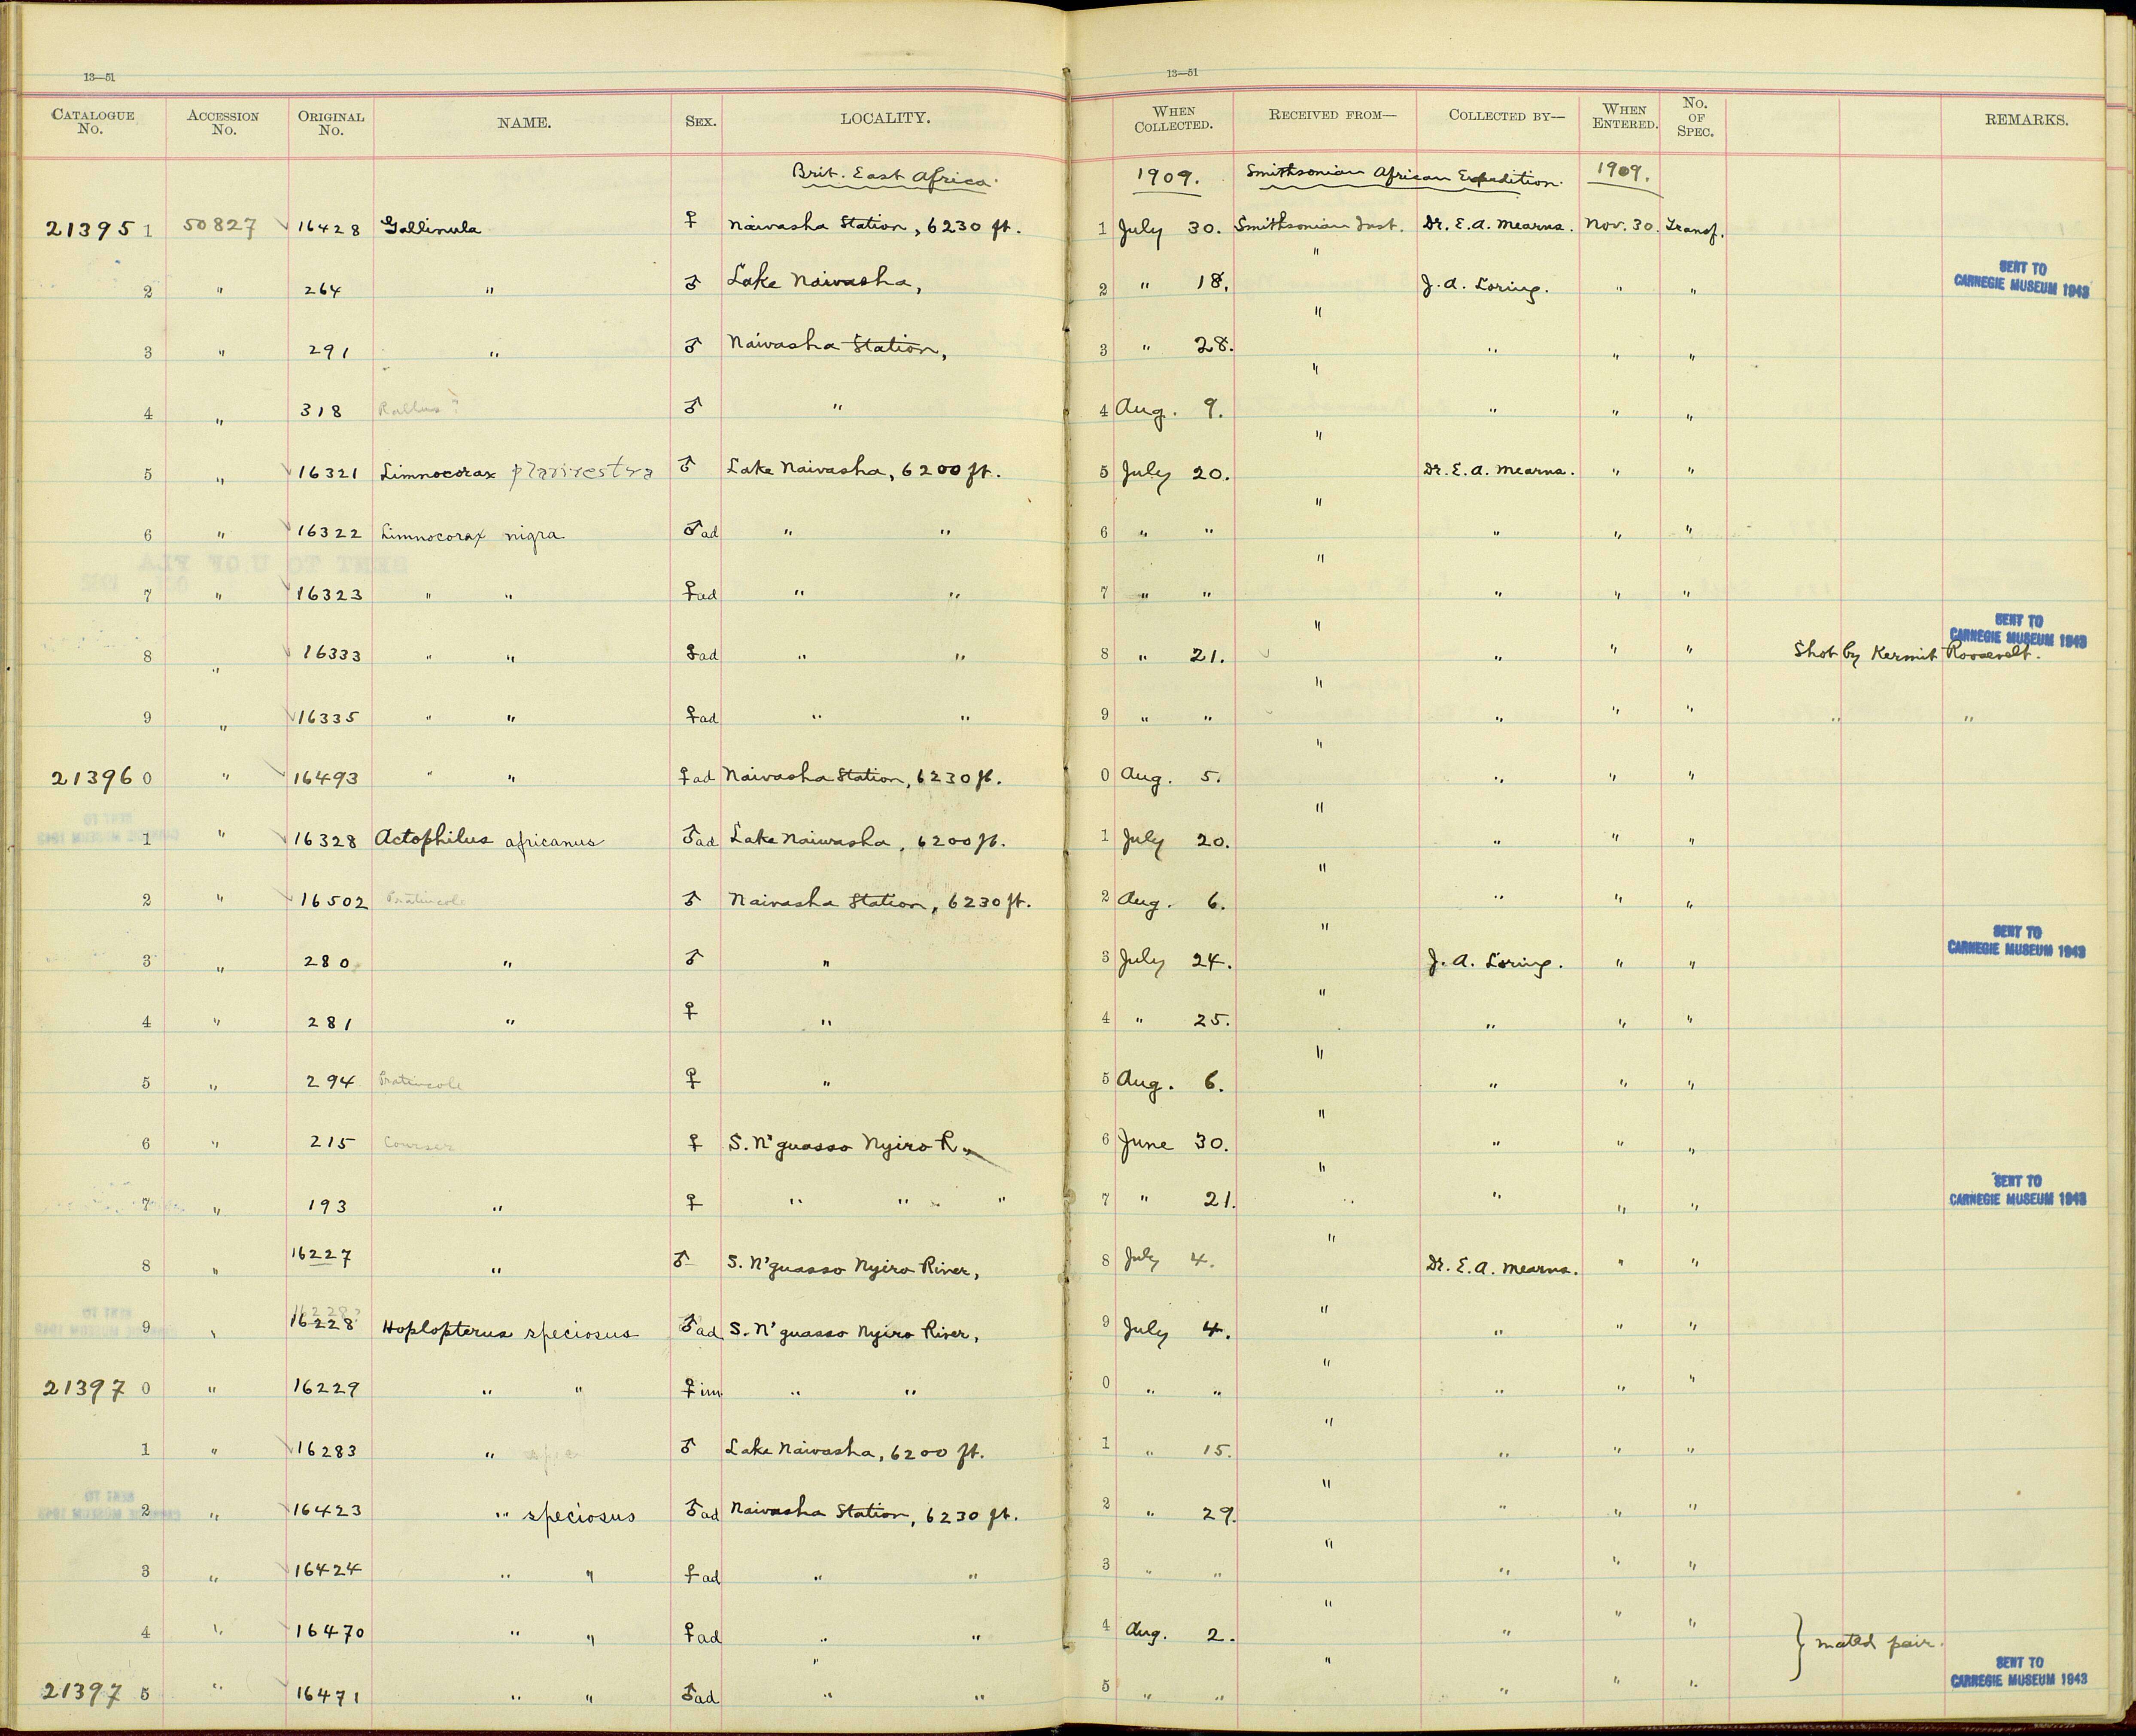 13—51 13—51
CATALOGUE No. ACCESSION No. ORIGINAL No. NAME. SEX. LOCALITY. WHEN COLLECTED. RECEIVED FROM— COLLECTED BY— WHEN ENTERED. No. OF SPEC. REMARKS.
Brit. East Africa. 1909. Smithsonian African Expedition. 1909.
21395 1 50827 16428 Gallinula ♀ Naivasha Station, 6230 ft. 1 July 30. Smithsonian Inst. Dr. E. A. Mearns. Nov. 30. Transf.
2 " 264 " ♂ Lake Naivasha, 2 " 18. " J. A. Loring. " " SENT TO CARNEGIE MUSEUM 1943
3 " 291 " ♂ Naivasha Station, 3 " 28. " " " "
4 " 318 Rallus? ♂ " 4 Aug. 9. " " " "
5 " 16321 Limnocorax ♂ Lake Naivasha, 6200 ft. 5 July 20. " Dr. E. A. Mearns. " "
6 " 16322 Limnocorax nigra ♂ad " " 6 " " " " " "
7 " 16323 " " ♀ad " " 7 " " " " " "
8 " 16333 " " ad " " 8 " 21. " " " " Shot by Kermit Roosevelt. SENT TO CARNEGIE MUSEUM 1943
9 " 16335 " " ♀ad " " 9 " " " " " " " "
21396 0 " 16493 " " ♀ad Naivasha Station, 6230 ft. 0 Aug. 5. " " " "
1 " 16328 Actophilus africanus ♂ad Lake Naivasha, 6200 ft. 1 July 20. " " " "
2 " 16502 Pratincole ♂ Naivasha Station, 6230 ft. 2 Aug. 6. " " " "
3 " 280 " ♂ " 3 July 24. " J. A. Loring. " " SENT TO CARNEGIE MUSEUM 1943
4 " 281 " ♀ " 4 " 25. " " " "
5 " 294 Pratincole ♀ " 5 Aug. 6. " " " "
6 " 215 Courser ♀ S. N'guasso Nyiro R., 6 June 30. " " " "
7 " 193 " ♀ " " " 7 " 21. " " " " SENT TO CARNEGIE MUSEUM 1943
8 " 16227 " ♂ S. N'guasso Nyiro River, 8 July 4. " Dr. E. A. Mearns. " "
16228?
9 " 16228 Hoplopterus speciosus ♂ad S. N'guasso Nyiro River, 9 July 4. " " " "
21397 0 " 16229 " " ♀im " " 0 " " " " " "
1 " 16283 " ♂ Lake Naivasha, 6200 ft. 1 " 15. " " " "
2 " 16423 " speciosus ♂ad Naivasha Station, 6230 ft. 2 " 29. " " " "
3 " 16424 " " ♀ad " " 3 " " " " " "
4 " 16470 " " ♀ad " " 4 Aug. 2. " " " " } mated pair.
21397 5 " 16471 " " ♂ad " " 5 " " " " " " SENT TO CARNEGIE MUSEUM 1943